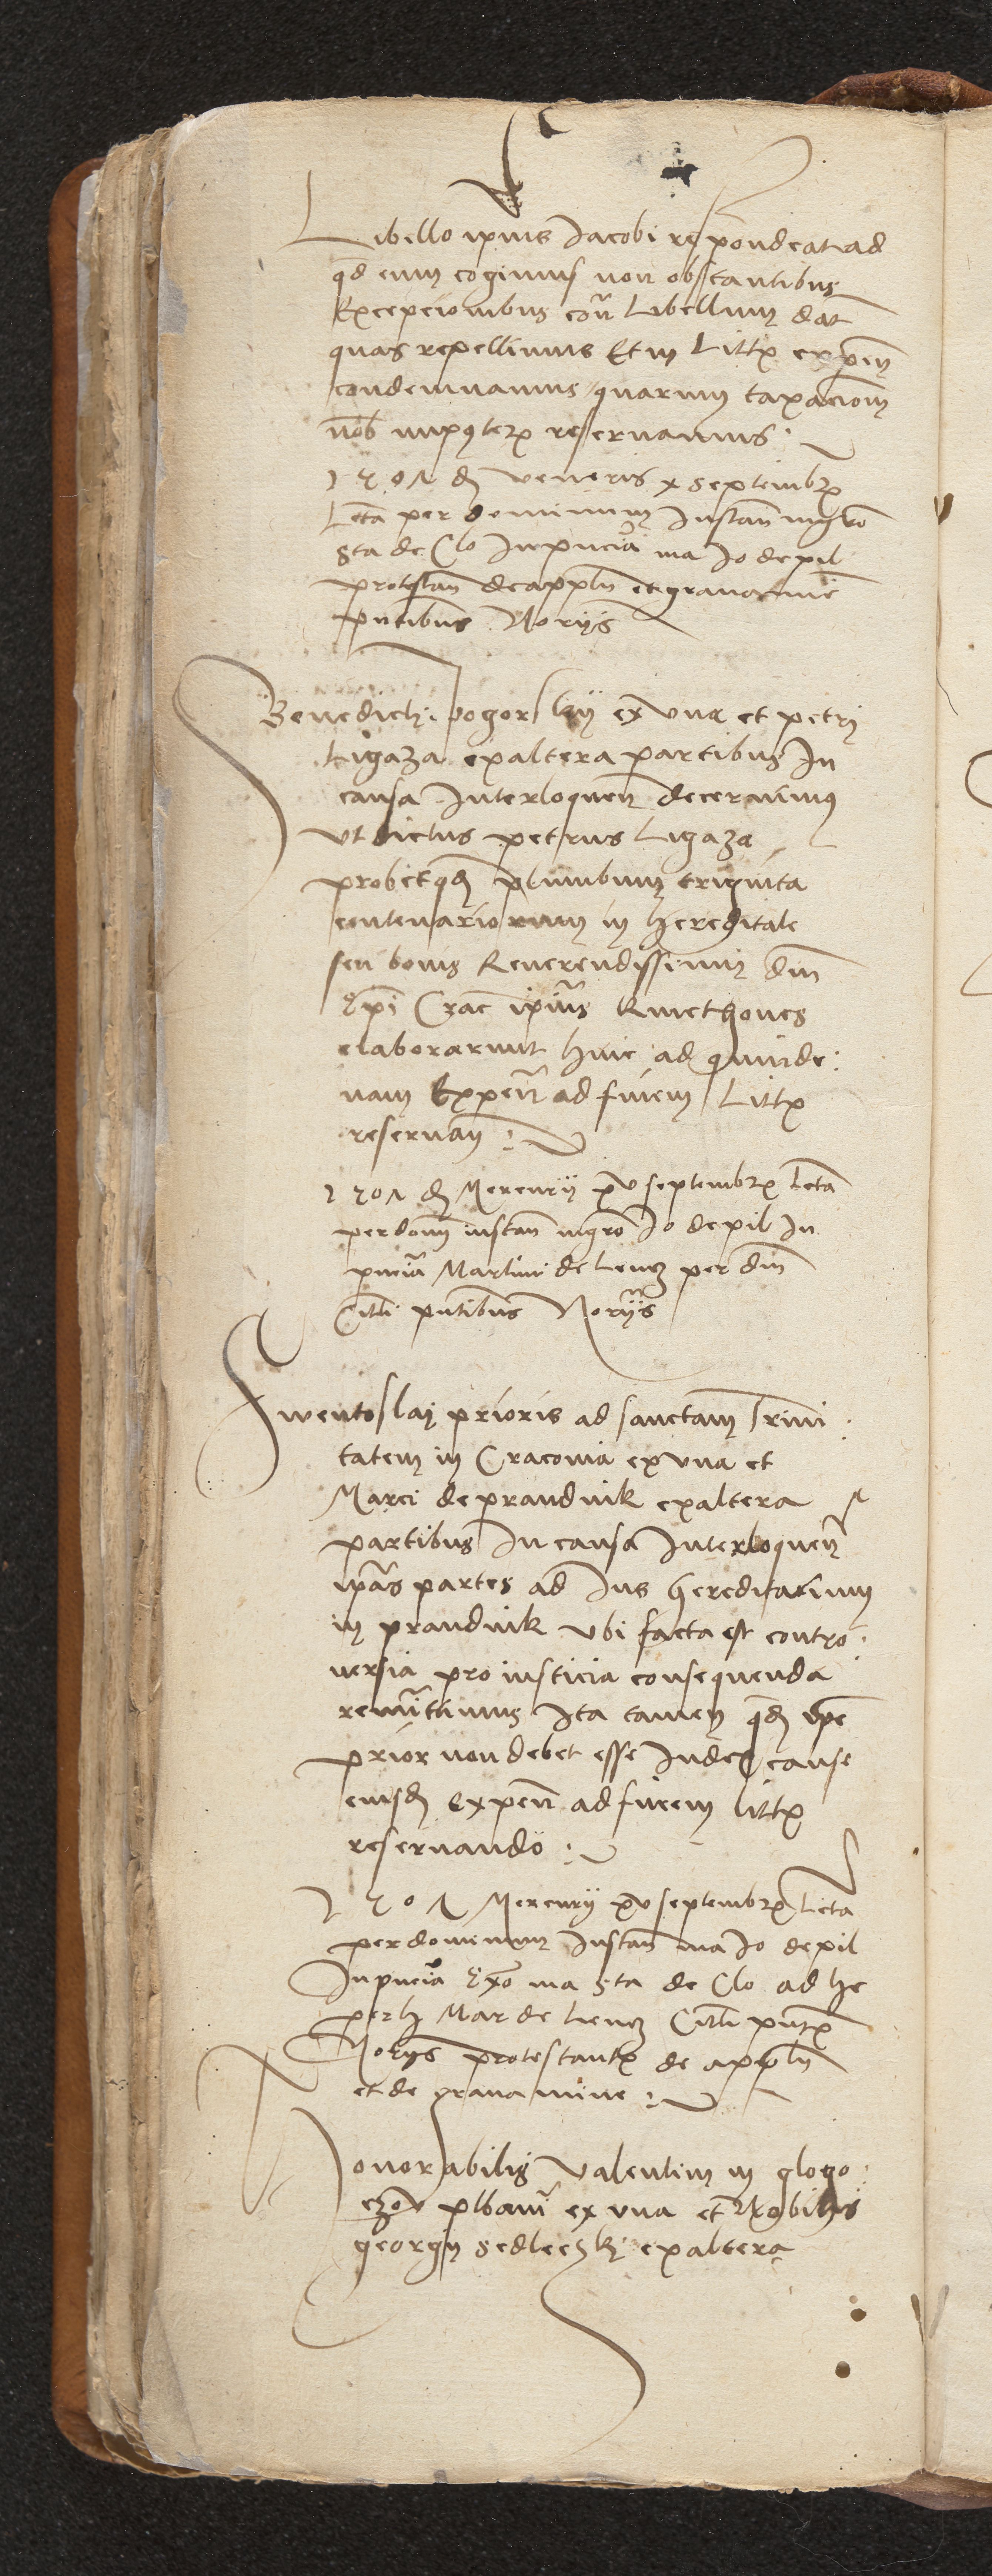 Libello ipius Jacobi respondeat ad
qd eum cogimus non obstantibus
Excepcionibus con Libellum dat
quas repellimus Et in Littis expen
condemnamus quarum taxaciom
nob imposter reservamus
1501 d veneris x septembr
Lcta per dominum Instan mgro
Sta de Clo In pncia ma Jo de pil
protestan de appln et gravamine
pntibus Norijs
Benedicti Jogorskij ex una et petri
Ligaza ex altera partibus In
causa Interloquen decernimus
ut dictus petrus Ligaza
probet qd plumbum triginta
centenariorum in hereditate
seu bonis Reverendissimi dni
Epi Crac ipius kmethones
elaborarunt hinc ad quinde:
nam Expen ad finem Littis
reservan
1501 d Mercurij xv septembr Lcta
per dom instan mgro Jo de pil In
pncia Martini de Lencz per dm
Citti pntibus Norijs
Swentoslai prioris ad sanctam Trini:
tatem in Cracovia ex una et
Marci de prandnik ex altera
partibus In causa Interloquen
ipas partes ad Ius hereditarium
in prandnik ubi facta est contro:
versia pro iusticia consequenda
remittimus Ita tamen qd ipe
prior non debet esse Iudex cause
eiusd Expen ad finem littis
reservando
1501 Mercurij xv septembr Lcta
per dominum Instan ma Jo de pil
In pncia ma Sta de Clo ad he
per h Mar de Lencz Citti pntis
Norijs protestantis de appln
et de gravamine
Honorabilis Valentini in glogo:
czow plbani ex una et Nobilis
georgij Sedleczki ex altera